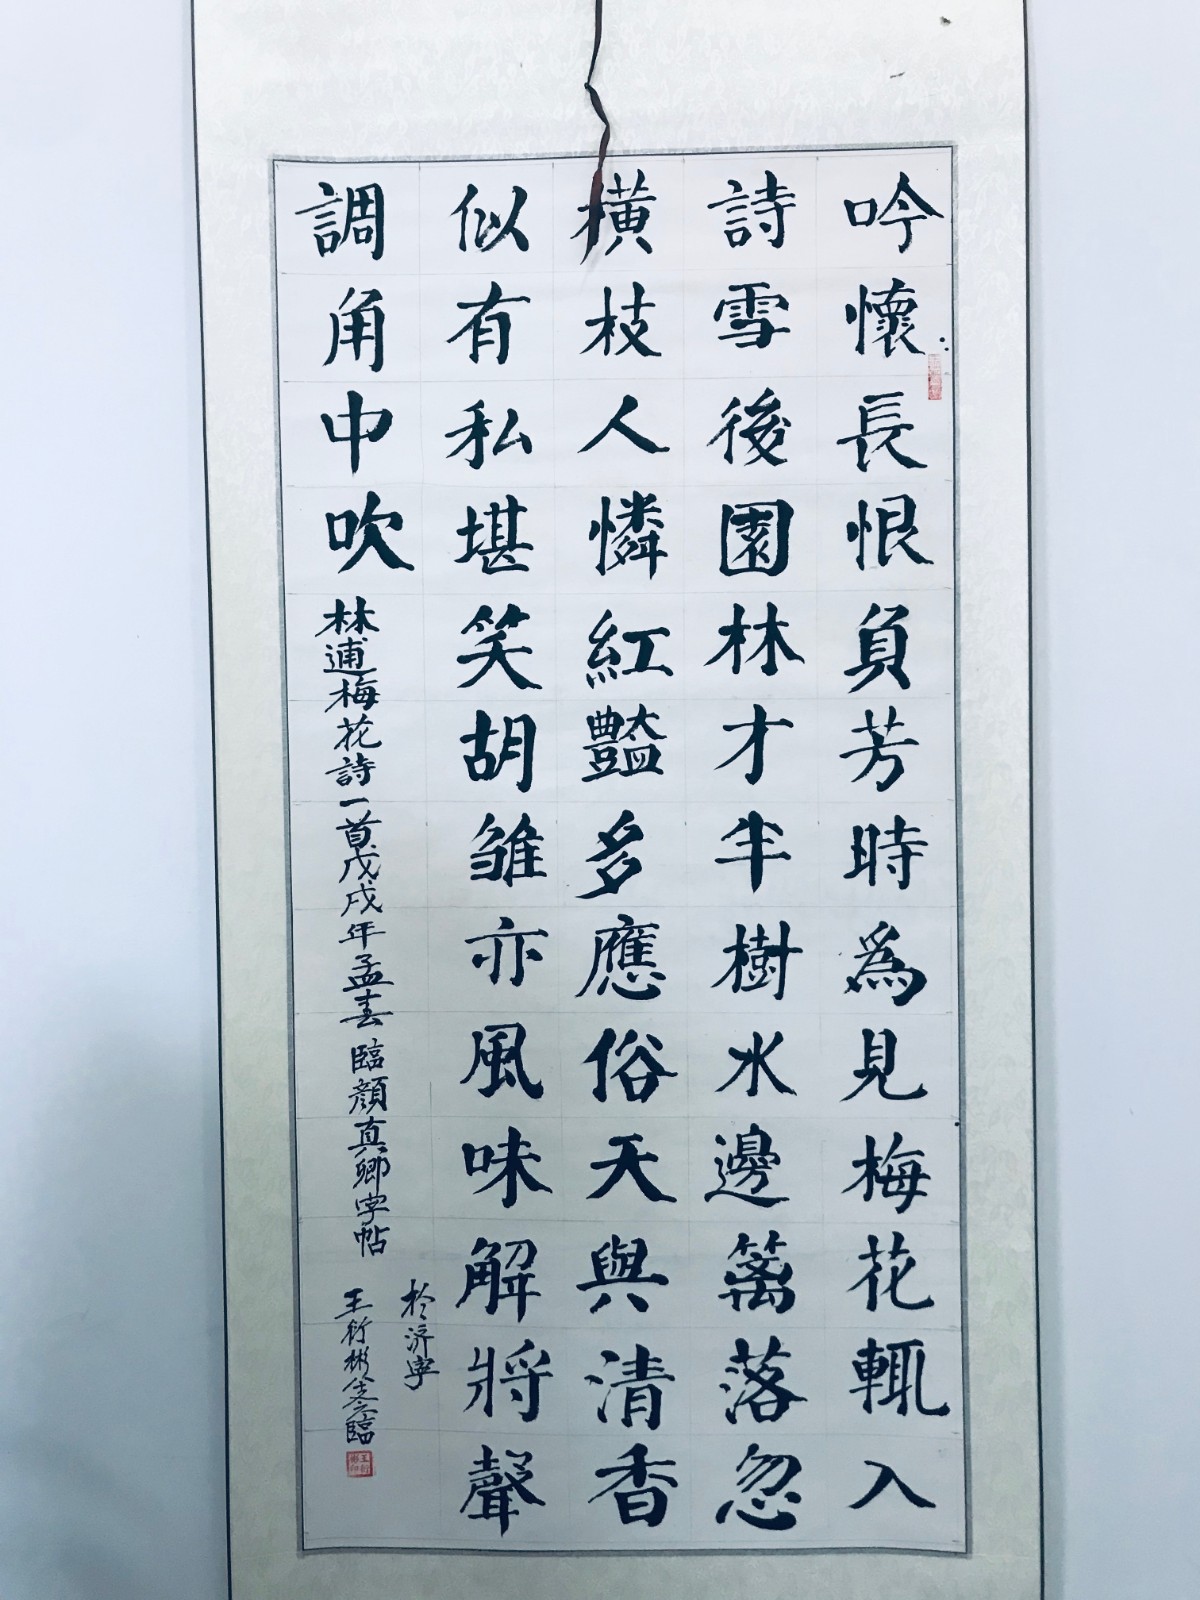 吟懷長恨負芳時為見梅花輒入
詩雪後園林才半樹水邊籬落忽
橫枝人憐紅豔多應俗天與清香
似有私堪笑胡雛亦風味解將聲
調角中吹
林逋梅花詩一首戊戌年孟春臨顏真卿字帖
於济寧
王衍彬臨